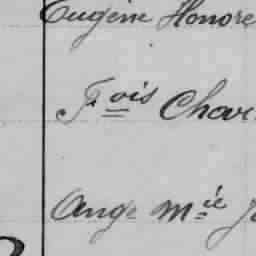 Eugène Honoré
Fois Char
Ange Mie